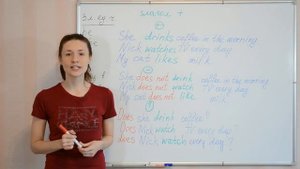 She drinks coffee in the morning
Nick watches TV every day
My cat likes milk
She does not drink coffee in the morning
Nick does not watch TV every day
My cat does not like milk
Does she drink coffee?
Does Nick watch TV every day?
does Nick watch every day?